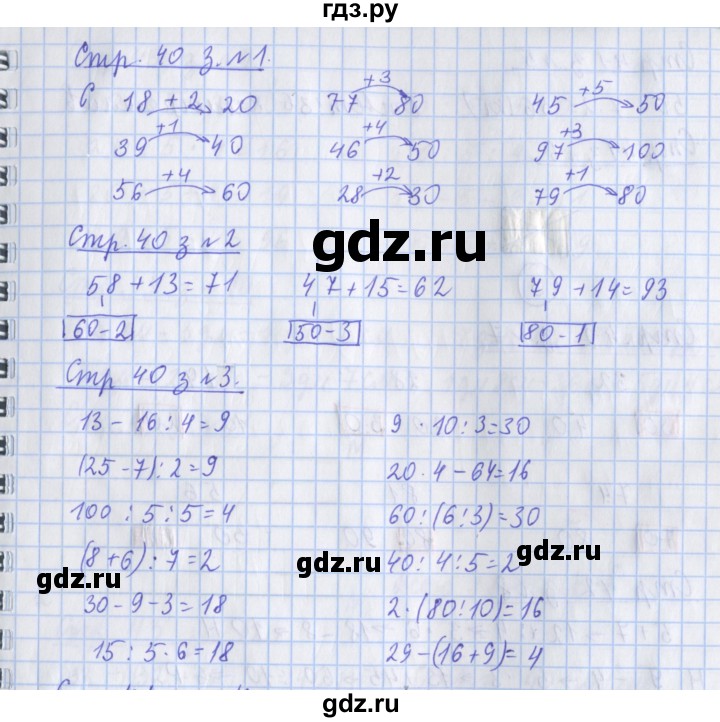 гдз.ру
Стр. 40 з. №1.
С 18 +2 20 77 +3 80 45 +5 50
39 +1 40 46 +4 50 97 +3 100
56 +4 60 28 +2 30 79 +1 80
Стр. 40 з №2
gdz.ru
58+13=71 47+15=62 79+14=93
60-2 50-3 80-1
Стр 40 з №3.
13-16:4=9 9·10:3=30
(25-7):2=9 20·4-64=16
100:5:5=4 60:(6:3)=30
(8+6):7=2 40:4:5=2
gdz.ru gdz.ru gdz.ru
30-9-3=18 2·(80:10)=16
15:5·6=18 29-(16+9)=4
gdz.ru